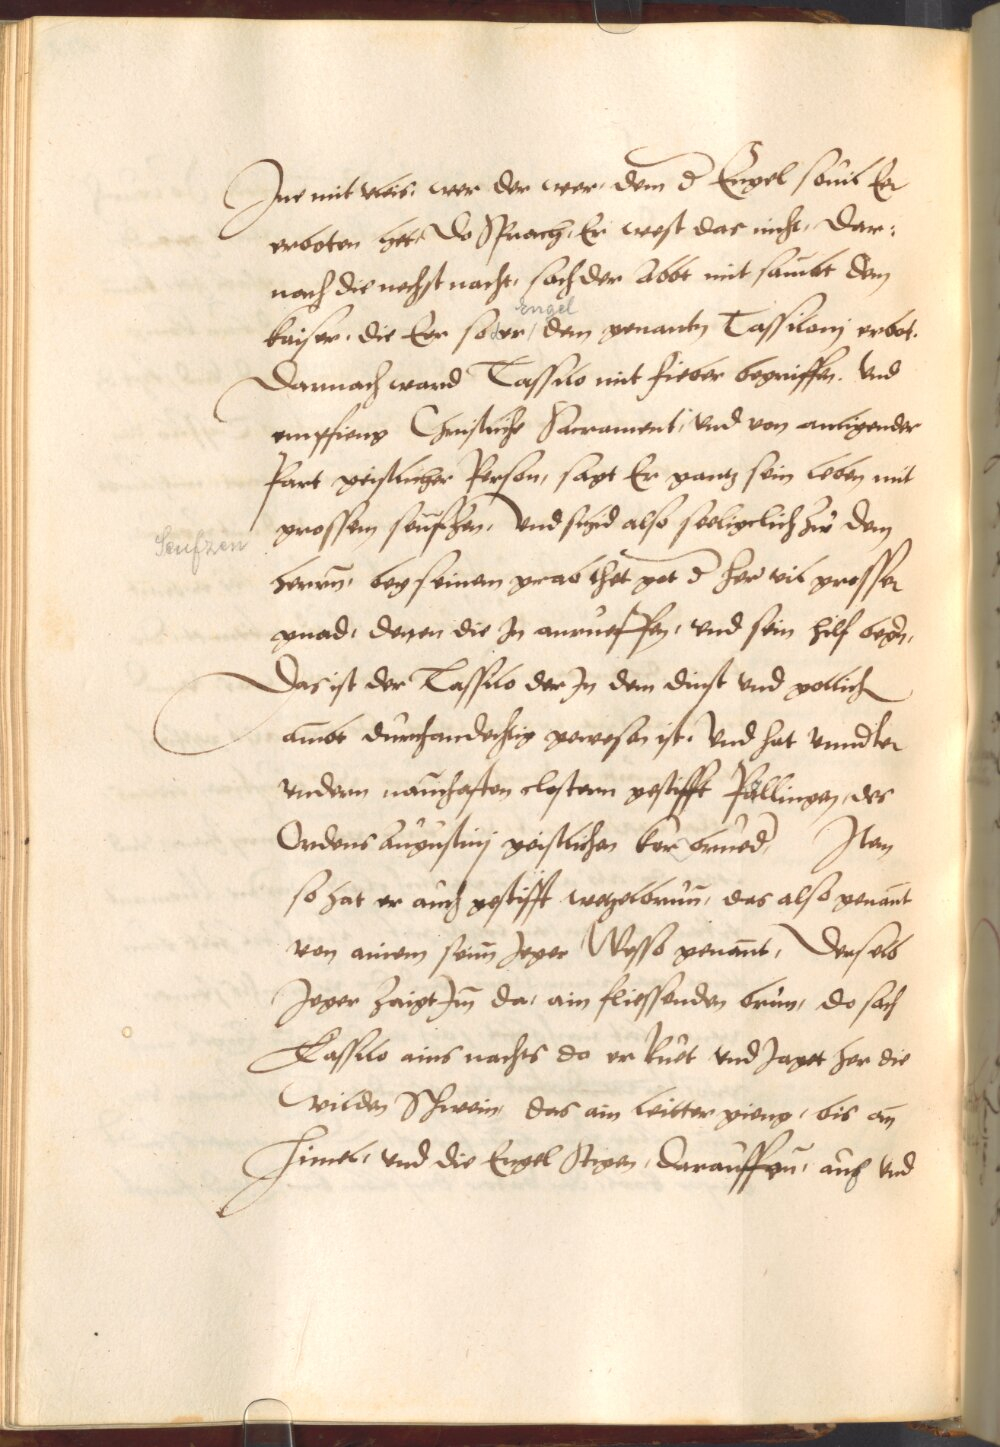 Jne mit vleis, wer der wer, dem d Engel souil Er
erboten het, Do Sprach Er west das nicht, Dar:
nach die nechst nacht, sach der Abbt mit sambt dem
Engel
kaiser, die Eer so er, dem genantn Tassilonj erbot.
Darnach ward Tassilo mit fieber begriffen. Vnd
empfieng Christliche Sacrament, vnd von anligender
Part geistlicher Person, sagt Er gantz sein leben mit
grossem seufzen, Vnd starb also seeligclich zu dem
Seufzen
herrn, bey seinem grab thet got d her vil grosser
gnad, denen die Jn anrueffen, vnd sein hilf begern,
Das ist der Tassilo der Jn dem dinst vnd gotlich
ambt durchandechtig gewesen ist, Vnd hat vnnder
andern namhafften clostern gestifft Pollingen, des
Ordens Augustinj geistlichen kor brued, Jtem
so hat er auch gestifft wesselbrun, das also genant
von ainem seinm Jeger Wesso genant, Derselb
Jeger zaigt Jm da, ain fliessenden brun, do sach
Tassilo ains nachts do er kuet vnd Jaget her die
wilden Schwein, das ain leitter gieng, bis an
Himel, vnd die Engel Stigen, darauff, auf vnd